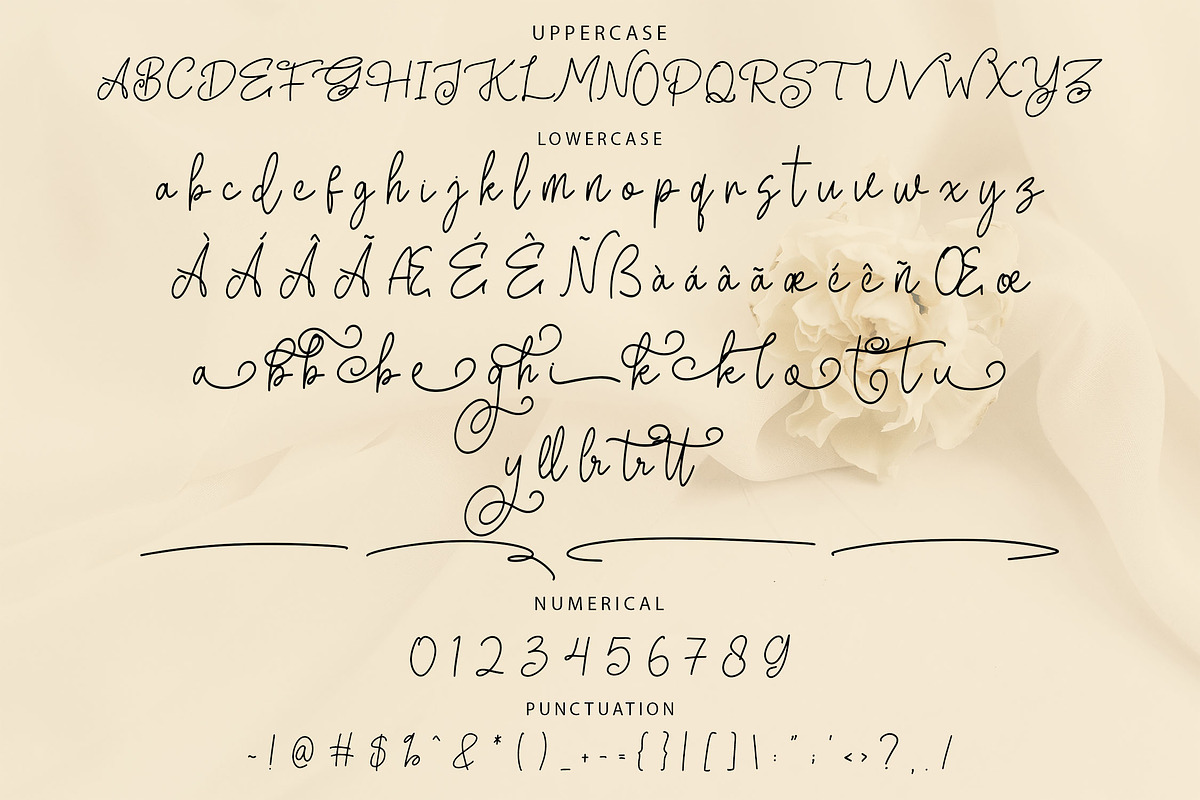 UPPERCASE
ABCDEFGHIJKLMNOPQRSTUVWXYZ
LOWERCASE
a b c d e f g h i j k l m n o p q r s t u v w x y z
À Á Â Ã Æ É Ê Ñ ß à á â ã æ é ê ñ Œ œ
a b b c b e g h i k c k l o t t u
y ll br tr tt
NUMERICAL
0 1 2 3 4 5 6 7 8 9
PUNCTUATION
~ ! @ # $ % ^ & * ( ) _ + - = { } | [ ] \ : " ; ' < > ? , . /